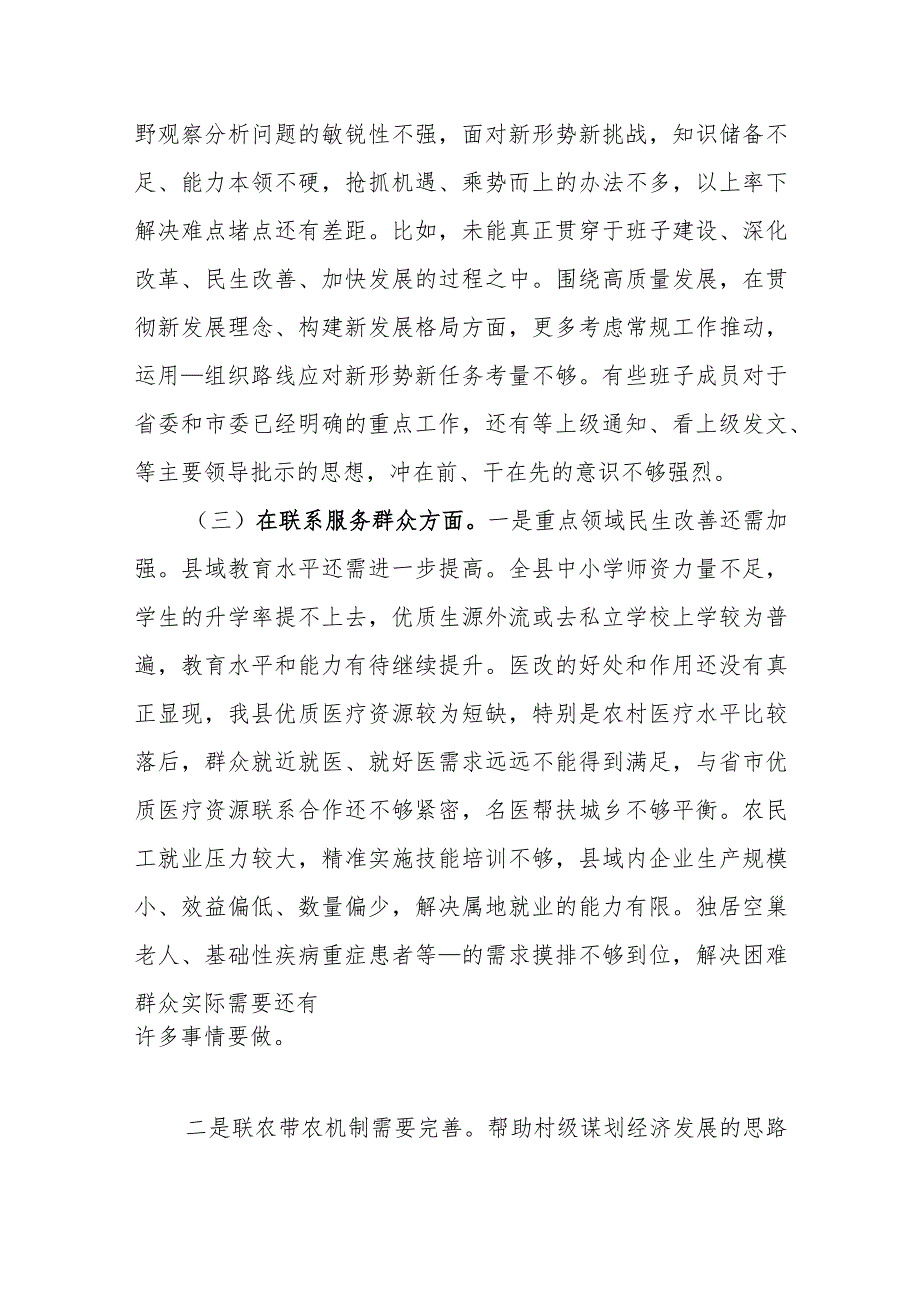 野观察分析问题的敏锐性不强，面对新形势新挑战，知识储备不
足、能力本领不硬，抢抓机遇、乘势而上的办法不多，以上率下
解决难点堵点还有差距。比如，未能真正贯穿于班子建设、深化
改革、民生改善、加快发展的过程之中。围绕高质量发展，在贯
彻新发展理念、构建新发展格局方面，更多考虑常规工作推动，
运用—组织路线应对新形势新任务考量不够。有些班子成员对于
省委和市委已经明确的重点工作，还有等上级通知、看上级发文、
等主要领导批示的思想，冲在前、干在先的意识不够强烈。
（三）在联系服务群众方面。一是重点领域民生改善还需加
强。县域教育水平还需进一步提高。全县中小学师资力量不足，
学生的升学率提不上去，优质生源外流或去私立学校上学较为普
遍，教育水平和能力有待继续提升。医改的好处和作用还没有真
正显现，我县优质医疗资源较为短缺，特别是农村医疗水平比较
落后，群众就近就医、就好医需求远远不能得到满足，与省市优
质医疗资源联系合作还不够紧密，名医帮扶城乡不够平衡。农民
工就业压力较大，精准实施技能培训不够，县域内企业生产规模
小、效益偏低、数量偏少，解决属地就业的能力有限。独居空巢
老人、基础性疾病重症患者等—的需求摸排不够到位，解决困难
群众实际需要还有
许多事情要做。
二是联农带农机制需要完善。帮助村级谋划经济发展的思路